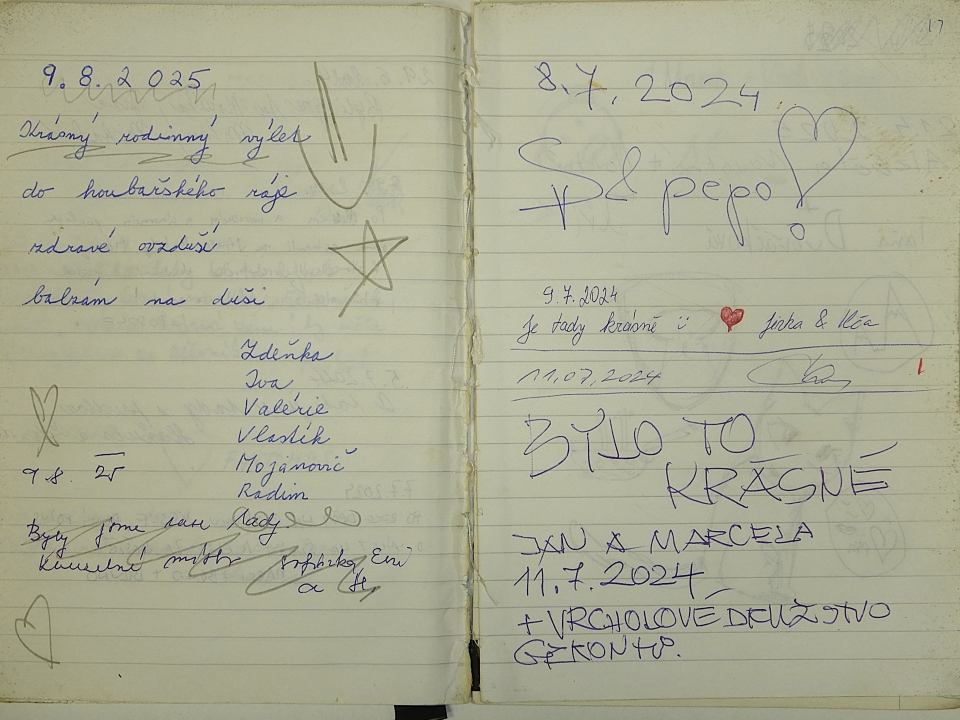 9.8.2025
Krásný rodinný výlet
do houbařského ráje
zdravé ovzduší
balzám na duši
Zdeňka
Iva
Valérie
Vlastík
Mojanovič
Radim
9.8. 25
Byly jsme tady
Kouzelné místo
a
17
8.7.2024
pepo!
9.7.2024
Je tady krásně ü Jirka &
11.07.2024
BYLO TO
KRÁSNÉ
JAN A MARCELA
11.7.2024
+ VRCHOLOVÉ DRUŽSTVO